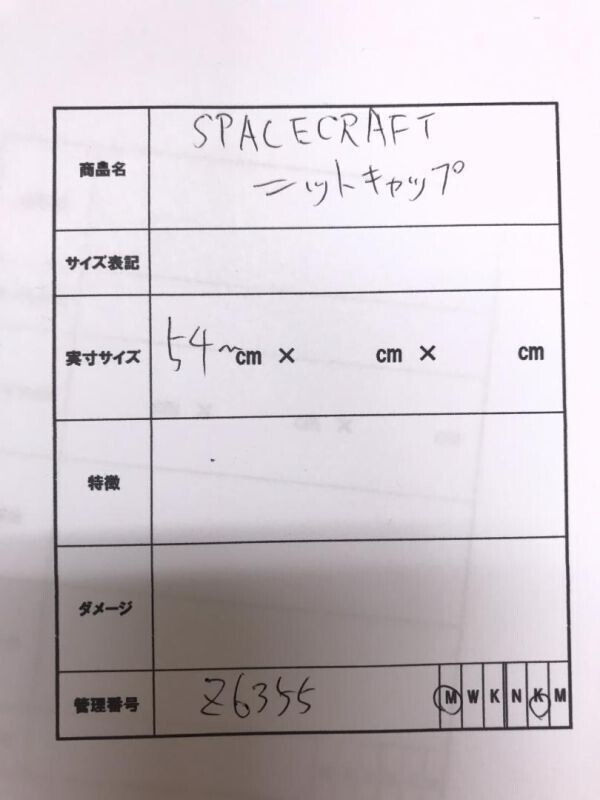 商品名 SPACECRAFT
ニットキャップ
サイズ表記
実寸サイズ 54~cm × cm × cm
特徴
ダメージ
管理番号 Z6355 M W K N K M